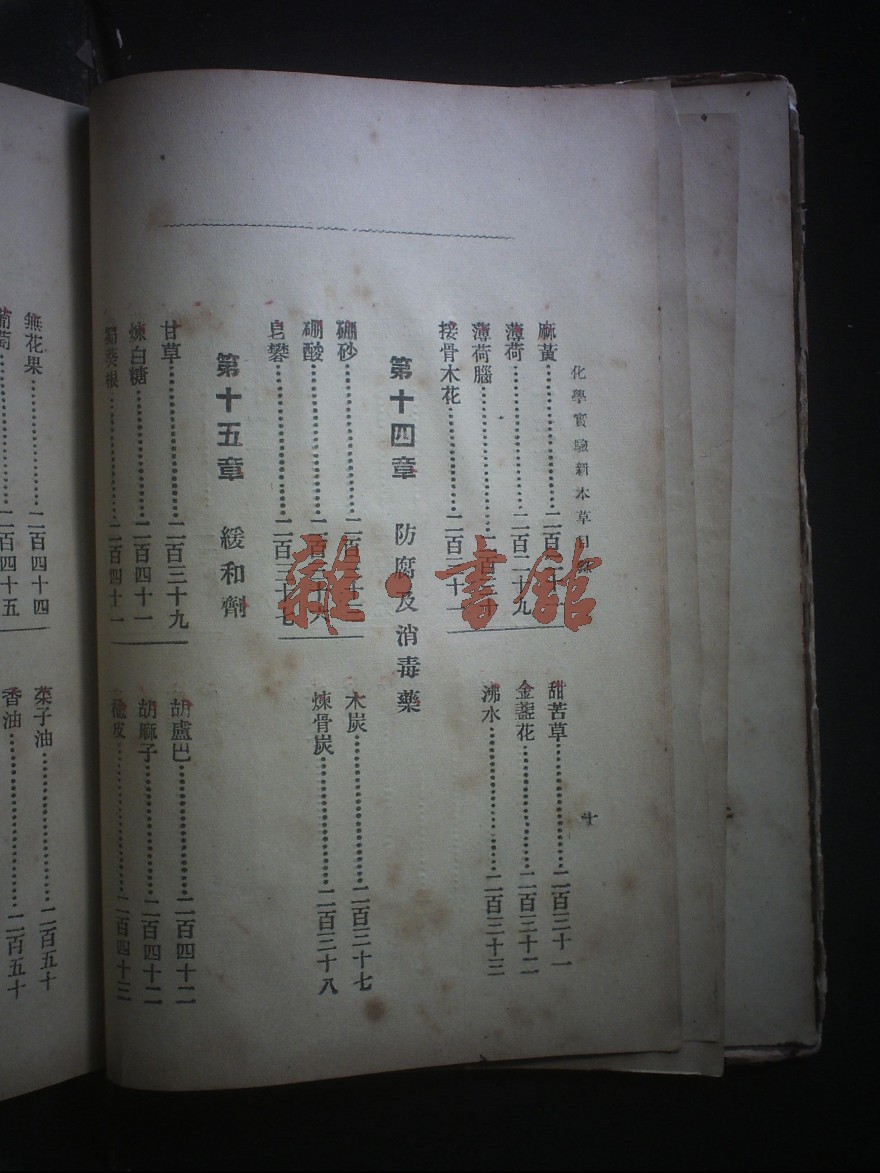 化學實驗新本草目
十
麻黃……………………二百
薄荷……………………二百二十九
薄荷腦…………………二百三十
接骨木花………………二百三十一
甜苦草…………………二百三十一
金盞花…………………二百三十二
沸水……………………二百三十三
第十四章 防腐及消毒藥
硼砂……………………二百三十
硼酸……………………二百三十六
皂礬……………………二百三十七
木炭……………………二百三十七
煉骨炭…………………二百三十八
第十五章 緩和劑
甘草……………………二百三十九
煉白糖…………………二百四十一
蜀葵根…………………二百四十一
胡盧巴…………………二百四十二
胡麻子…………………二百四十二
皮……………………二百四十三
無花果…………………二百四十四
葡萄……………………二百四十五
菜子油…………………二百五十
香油……………………二百五十
雜·書館